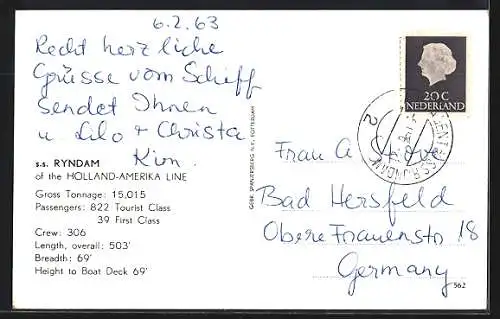 6.2.63
Recht herzliche
Grüsse vom Schiff
sendet Ihnen
u Lilo + Christa
Kim.
s.s. RYNDAM
of the HOLLAND-AMERIKA LINE
Gross Tonnage: 15,015
Passengers: 822 Tourist Class
39 First Class
Crew: 306
Length, overall: 503'
Breadth: 69'
Height to Boat Deck 69'
GEBR. SPANJERSBERG N.V., ROTTERDAM
20 C
NEDERLAND
2
Frau A
Bad Hersfeld
Obere Frauenstr 18
Germany
562